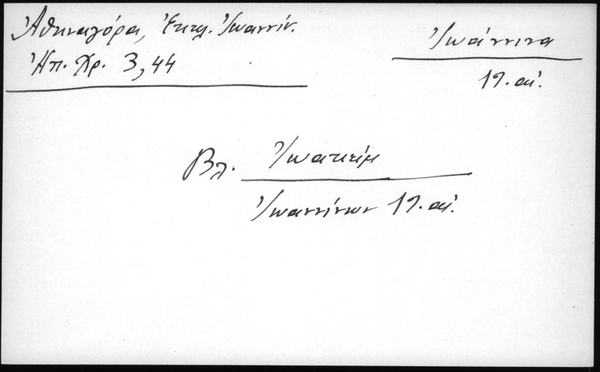 Ἀθηναγόρα, Ἐκκλ. Ἰωαννίν.
Ἠπ. Χρ. 3, 44
Ἰωάννινα
17. αἰ.
Βλ. Ἰωακείμ
Ἰωαννίνων 17. αἰ.